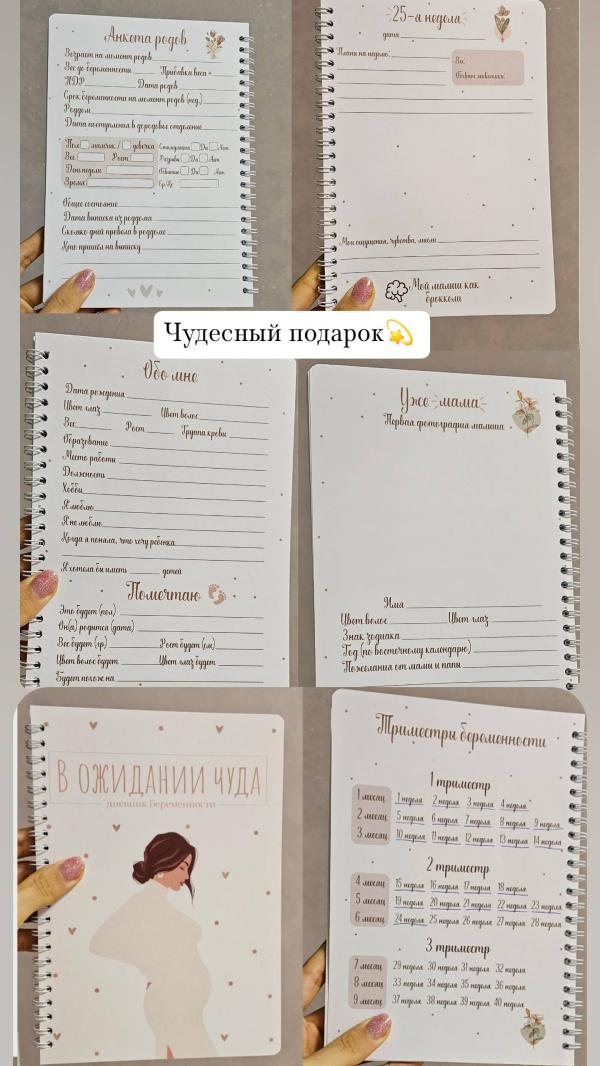 Анкета родов
Возраст на момент родов
Вес до беременности Прибавка веса +
ПДР Дата родов
Срок беременности на момент родов (нед.)
Роддом
Дата поступления в дородовое отделение
Пол мальчик / девочка
Вес Рост
День недели
Время
Стимуляция Да Нет
Разрывы Да Нет
Да Нет
Общее состояние
Дата выписки из роддома
Сколько дней провела в роддоме
Кто пришёл на выписку
25-я неделя
дата
Планы на неделю:
Вес:
Обхват животика:
Мои ощущения, чувства, мысли
Мой малыш как
брокколи
Чудесный подарок💫
Обо мне
Дата рождения
Цвет глаз Цвет волос
Вес Рост Группа крови
Образование
Место работы
Должность
Хобби
Я люблю
Я не люблю
Когда я поняла, что хочу ребенка
Я хотела бы иметь детей
Помечтаю
Это будет (пол)
Он(а) родится (дата)
Вес будет (гр) Рост будет (см)
Цвет волос будет Цвет глаз будет
Будет похож на
Уже мама
Первая фотография малыша
Имя
Цвет волос Цвет глаз
Знак зодиака
Год (по восточному календарю)
Пожелания от мамы и папы
В ОЖИДАНИИ ЧУДА
дневник беременности
Триместры беременности
1 триместр
1 месяц 1 неделя 2 неделя 3 неделя 4 неделя
2 месяц 5 неделя 6 неделя 7 неделя 8 неделя 9 неделя
3 месяц 10 неделя 11 неделя 12 неделя 13 неделя 14 неделя
2 триместр
4 месяц 15 неделя 16 неделя 17 неделя 18 неделя
5 месяц 19 неделя 20 неделя 21 неделя 22 неделя 23 неделя
6 месяц 24 неделя 25 неделя 26 неделя 27 неделя 28 неделя
3 триместр
7 месяц 29 неделя 30 неделя 31 неделя 32 неделя
8 месяц 33 неделя 34 неделя 35 неделя 36 неделя
9 месяц 37 неделя 38 неделя 39 неделя 40 неделя